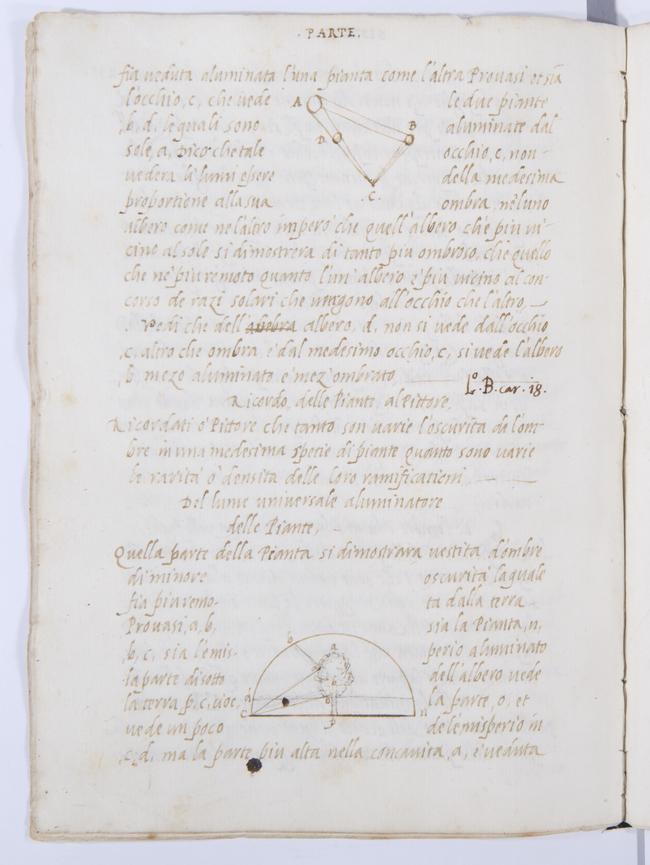 . PARTE.
fia veduta aluminata l'una pianta come l'altra Provasi et sia
l'occhio, c, che vede le due piante
,b, d, le quali sono aluminate dal
sole, a, Dico che tale occhio, c, non
vedera li lumi esere della medesima
proportione alla sua ombra nel'uno
albero come nel'altro impero che quell'albero ch'e piu vi-
cino al sole si dimostrera di tanto piu ombroso, che quello
che n'e piu remoto quanto l'un' albero e piu vicino al con-
corso de razi solari che vengono all'occhio che l'altro,
Vedi che dell' albero, d, non si vede dall'occhio
,c, altro che ombra e dal medesimo occhio, c, si vede l'albero
,b, mezo aluminato e mez'ombrato,
Lo. B. car. 18.
Ricordo, delle Piante, al Pittore,
Ricordati o' Pittore che tanto son varie l'oscurita de l'om-
bre in una medesima spetie di piante quanto sono varie
le rarità o' densita delle loro ramificationi,
Del lume universale aluminatore
delle Piante,
Quella parte della Pianta si dimostrara vestita d'ombre
di minore oscurità laquale
fia piu remo- ta dalla terra
Provasi, a, b, sia la Pianta, n,
,b, c, sia l'emis- perio aluminato
la parte di sotto dell'albero vede
la terra p, c, cioe, la parte, o, et
vede un poco de lemisperio in
,c, d, ma la parte piu alta nella concavita, a, e veduta
A
B
D
C
b
a
o
d
c
p
n